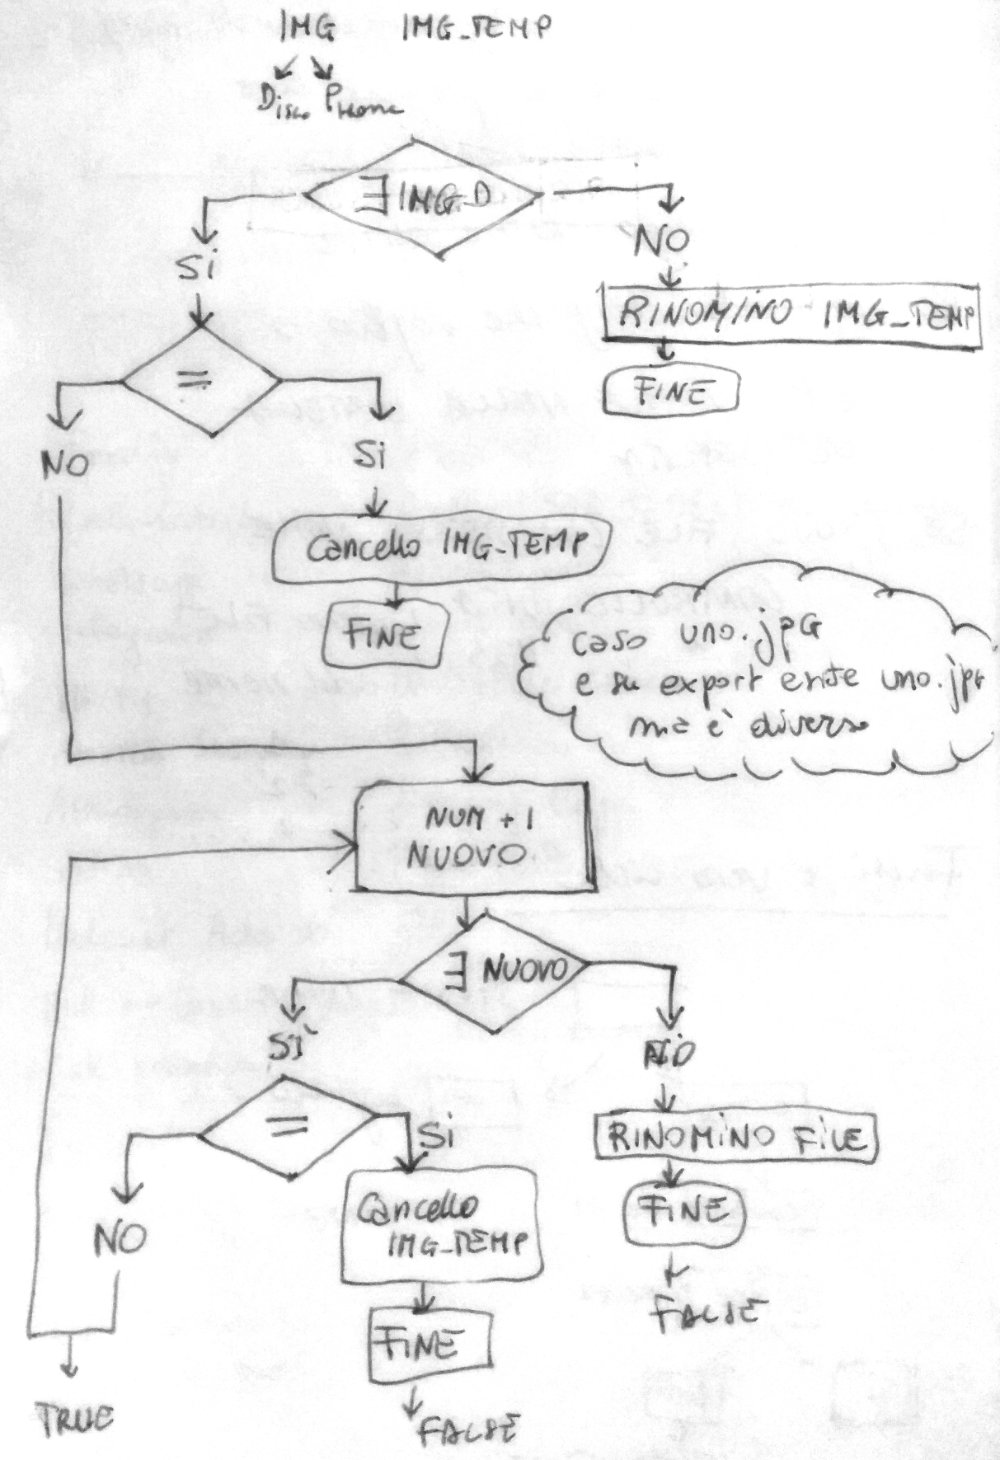 IMG IMG_TEMP
Disco Phone
∃ IMG_D
Si
NO
RINOMINO IMG_TEMP
FINE
=
NO
Si
Cancello IMG_TEMP
FINE
caso uno.jpG
e su export esiste uno.jpG
ma è diverso
NUM + 1
NUOVO
∃ NUOVO
SÌ
NO
=
Si
RINOMINO FILE
NO
Cancello
IMG_TEMP
FINE
FALSE
FINE
TRUE
FALSE